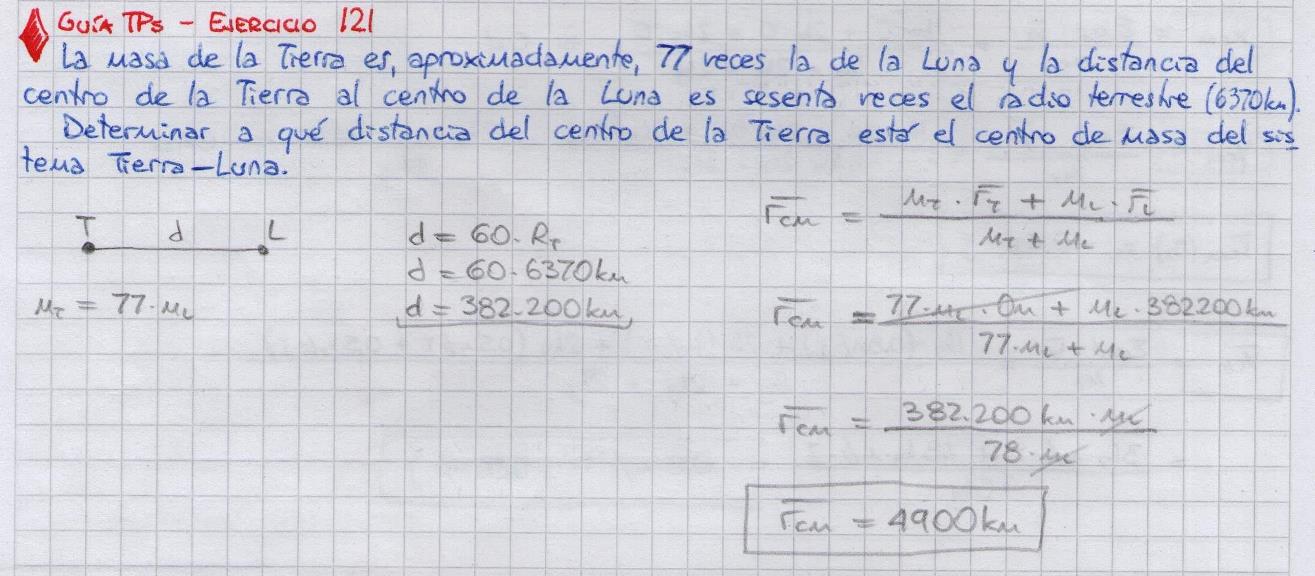 GUÍA TPs - EJERCICIO 121
La masa de la Tierra es, aproximadamente, 77 veces la de la Luna y la distancia del
centro de la Tierra al centro de la Luna es sesenta veces el radio terrestre (6370km).
Determinar a qué distancia del centro de la Tierra está el centro de masa del sis
tema Tierra-Luna.
T d L
M_T = 77·M_L
d = 60·R_T
d = 60·6370km
d = 382.200km
r_CM = (M_T · r_T + M_L · r_L) / (M_T + M_L)
r_CM = (77·M_L · 0m + M_L · 382200km) / (77·M_L + M_L)
r_CM = (382.200 km · M_L) / (78·M_L)
r_CM = 4900km